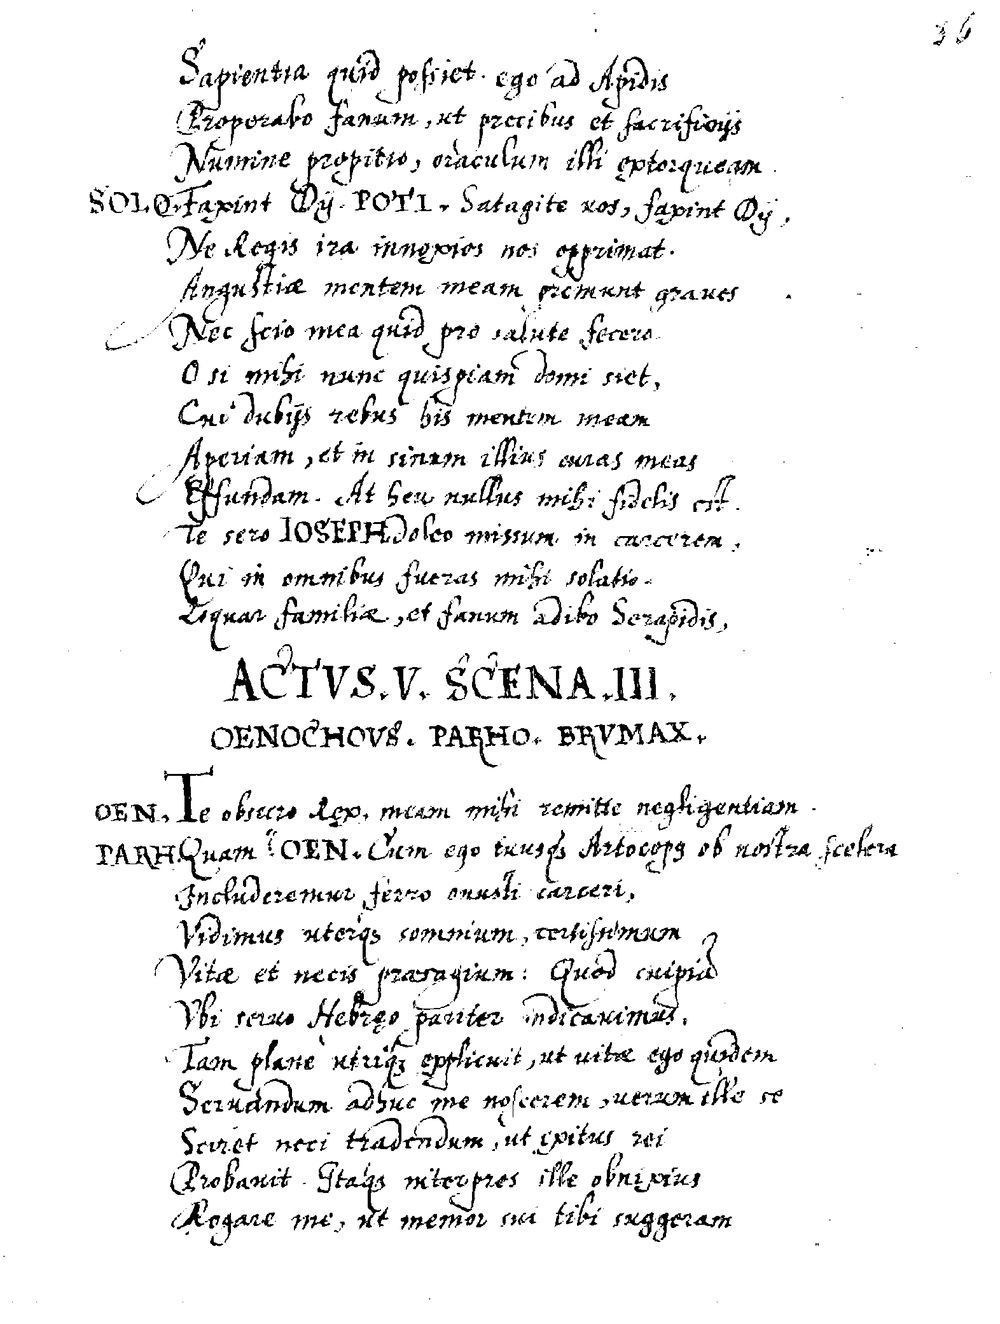 36
Sapientia quid possiet. ego ad Apidis
Properabo fanum, ut precibus et sacrificijs
Numine propitio, oraculum illi extorqueam.
SOLO. Faxint Dij. POTI. Satagite uos, faxint Dij,
Ne Regis ira innoxios nos opprimat.
Angustiæ mentem meam premunt graues
Nec scio mea quid pro salute fecero.
O si mihi nunc quispiam domi siet,
Cui dubijs rebus his mentem meam
Aperiam, et in sinum illius curas meas
Effundam. At heu nullus mihi fidelis est.
Te sero IOSEPH doleo missum in carcerem,
Qui in omnibus fueras mihi solatio.
Loquar familiæ, et fanum adibo Serapidis,
ACTVS. V. SCENA. III.
OENOCHOVS. PARHO. BRVMAX.
OEN. Te obsecro Rex, meam mihi remitte negligentiam.
PARH. Quam? OEN. Cum ego tuusq; Artocopg ob nostra scelera
Includeremur ferro onusti carceri,
Vidimus uterq; somnium, certissimum
Vitæ et necis præsagium: Quod cupid
Vbi seruo Hebręo pariter indicauimus,
Tam plane utriq; explicuit, ut uitæ ego quidem
Seruandum adhuc me noscerem, uerum ille se
Sciret neci tradendum, ut exitus rei
Probauit. Itaq; interpres ille obnixius
Rogare me, ut memor sui tibi suggeram